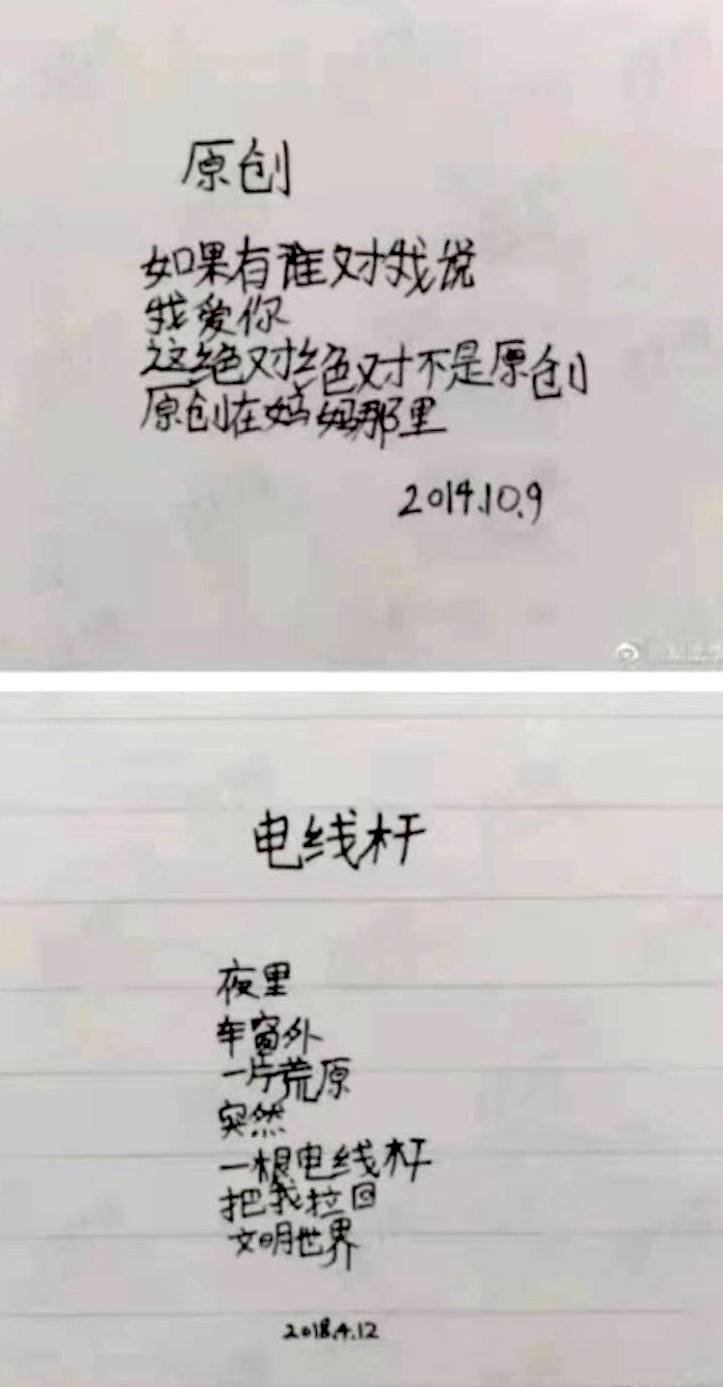 原创
如果有谁对我说
我爱你
这绝对绝对不是原创
原创在妈妈那里
2014.10.9
电线杆
夜里
车窗外
一片荒原
突然
一根电线杆
把我拉回
文明世界
2018.4.12